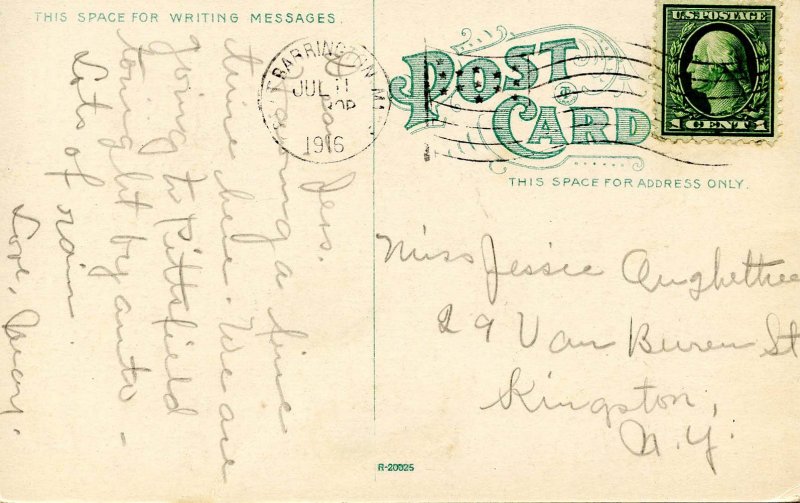 THIS SPACE FOR WRITING MESSAGES.
Dear Jess.
Having a fine
time here. We are
going to Pittsfield
tonight by auto -
Lots of rain.
Love, Mary.
BARRINGTON, MA
JUL 11
1916
POST CARD
U.S. POSTAGE
1 CENT 1
THIS SPACE FOR ADDRESS ONLY.
Miss Jessie
29 Van Buren St
Kingston,
N.Y.
R-20025